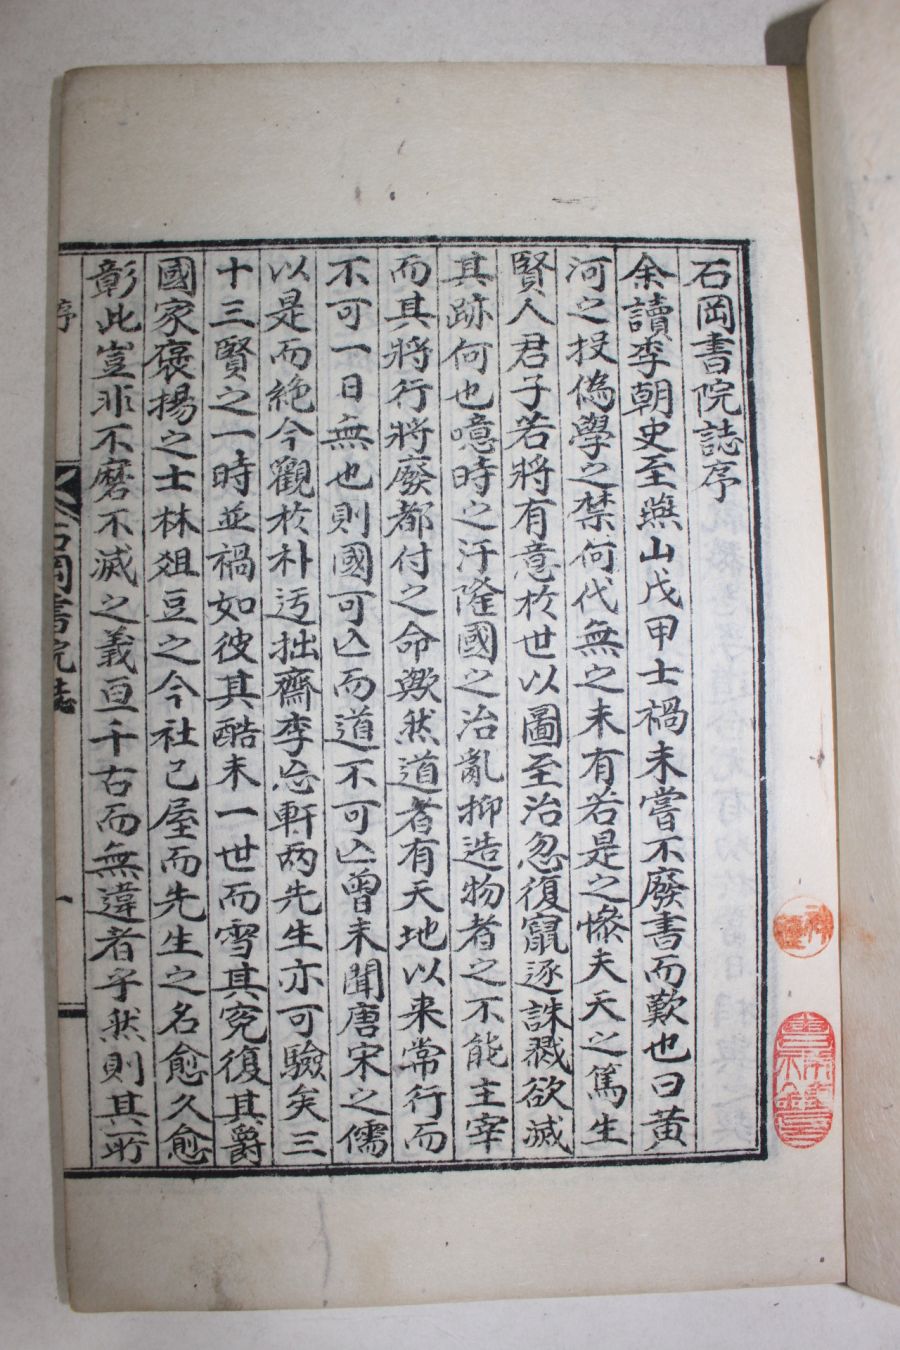 石岡書院誌序
余讀李朝史至燕山戊甲士禍未嘗不廢書而歎也曰黃
河之投偽學之禁何代無之未有若是之慘夫天之篤生
賢人君子若將有意於世以圖至治忽復竄逐誅戮欲滅
其跡何也噫時之汙隆國之治亂抑造物者之不能主宰
而其將行將廢都付之命歟然道者有天地以来常行而
不可一日無也則國可亾而道不可亾曾未聞唐宋之儒
以是而絶今觀於朴迃拙齋李忘軒两先生亦可驗矣三
十三賢之一時並禍如彼其酷未一世而雪其寃復其爵
國家褒揚之士林俎豆之今社已屋而先生之名愈久愈
彰此豈非不磨不滅之義亘千古而無違者乎然則其所
序
石岡書院誌
一